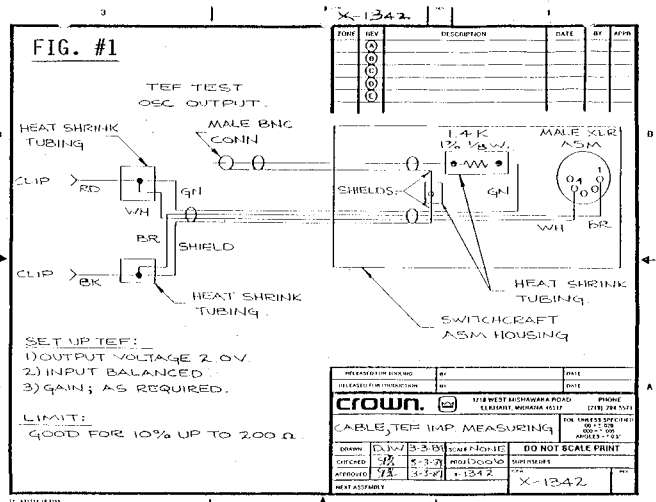 3
X-1342
1
ZONE REV DESCRIPTION DATE BY APPR
A
B
C
D
E
FIG. #1
TEF TEST
OSC OUTPUT.
HEAT SHRINK
TUBING
MALE BNC
CONN
1.4 K
1% 1/8 W.
MALE XLR
ASM
B
CLIP
RD
GN
SHIELDS
GN
4
1
WH
WH
BR
BR
SHIELD
CLIP
BK
HEAT SHRINK
TUBING.
HEAT SHRINK
TUBING.
SWITCHCRAFT
ASM HOUSING
SET UP TEF:
1) OUTPUT VOLTAGE 2.0V.
2) INPUT BALANCED
3) GAIN; AS REQUIRED.
LIMIT:
GOOD FOR 10% UP TO 200 Ω.
RELEASED FOR TOOLING BY DATE
RELEASED FOR PRODUCTION BY DATE
A
crown.
1718 WEST MISHAWAKA ROAD
ELKHART, INDIANA 46517
PHONE
(219) 294-5571
CABLE, TEF IMP. MEASURING
TOL. UNLESS SPECIFIED
ANGLES
DRAWN DJW 3-3-81 SCALE NONE DO NOT SCALE PRINT
CHECKED SUPERSEDES
APPROVED X-1342
NEXT ASSEMBLY
X-1342